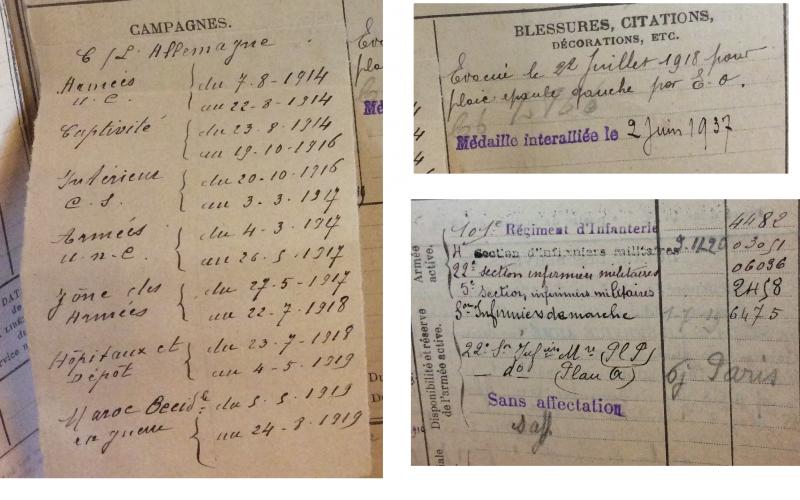 CAMPAGNES.
C/L Allemagne
Armées du 7-8-1914
u.c. au 22-8-1914
Captivité du 23.8-1914
au 19.10-1916
Intérieur du 20-10-1916
C.S. au 3-3-1917
Armées du 4-3-1917
u.n.c. au 26.5-1917
Zône des du 27-5-1917
Armées au 22-7-1918
Hôpitaux et du 23.7-1918
Dépôt au 4-5-1919
Maroc Occidle du 5.5-1919
en guerre au 24-8-1919
BLESSURES, CITATIONS,
DÉCORATIONS, ETC.
Évacué le 22 Juillet 1918 pour
plaie épaule gauche par E.O.
Médaille interalliée le 2 Juin 1937
101e Régiment d'Infanterie 4482
4 section d'infirmiers militaires 9.11.20 03051
22e section infirmiers militaires 06036
5e Section, infirmiers militaires 2458
Infirmiers de marche 6475
22e Son Infiers Mres Pl P
do (Plan A) Paris
Sans affectation
Saff.
Armée active.
Disponibilité et réserve de l'armée active.